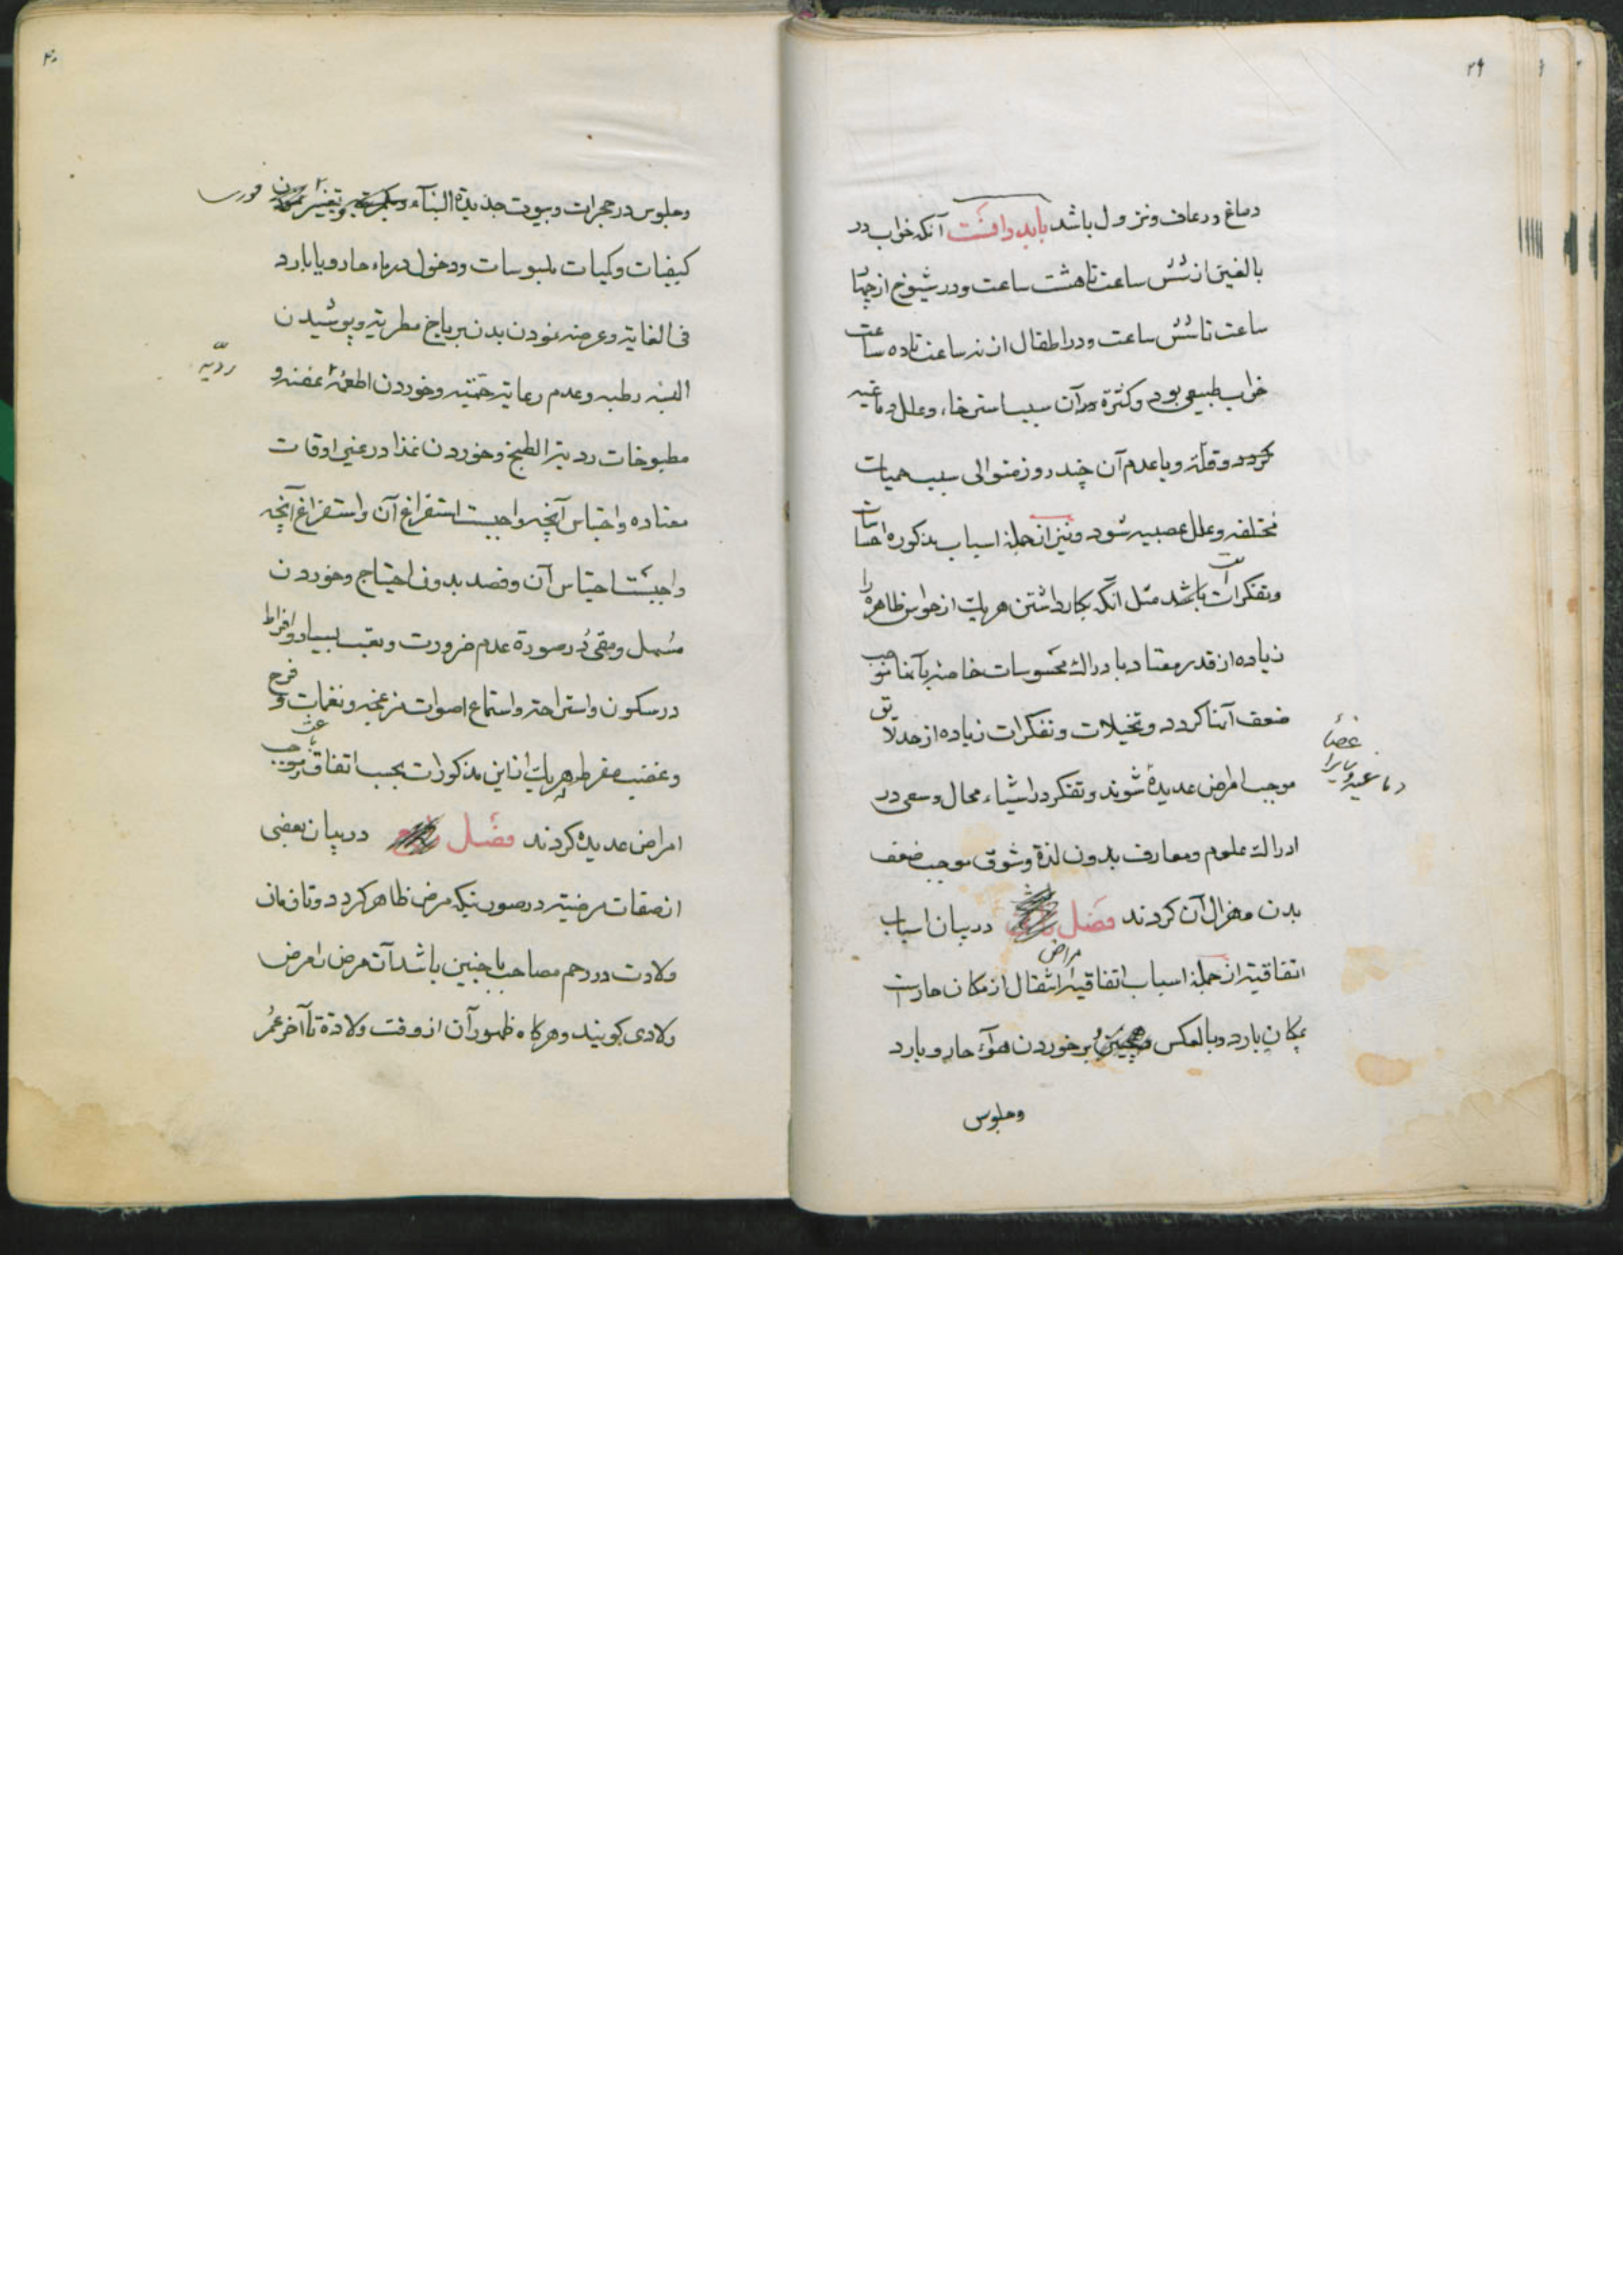 ۲۹
دماغ و رعاف و نزول باشد باید دانست آنکه خواب در
بالغین از شش ساعت تا هشت ساعت و در شیوخ از چهار
ساعت تا شش ساعت و در اطفال از نه ساعت تا ده ساعت
خواب طبیعی بود و کثرة در آن سبب استرخاء و علل دماغیه
گردد و قلة و یا عدم آن چند روز متوالی سبب حمیات
مختلفه و علل عصبیه شود و نیز از جملۀ اسباب مذکوره احساسات
و تفکرات باشد مثل آنکه بکار داشتن هر یک از حواس ظاهره را
زیاده از قدر معتاد بادراک محسوسات خاصۀ بآنها موجب
ضعف آنها گردد و تخیلات و تفکرات زیاده از حد لایق
اعضاء
دماغیه و سایر را
موجب امراض عدیدۀ شوند و تفکر در اشیاء محال و سعی در
ادراک علوم و معارف بدون لذة و شوق موجب ضعف
بدن و هزال آن گردند فصل در بیان اسباب
اتفاقیة از جملۀ اسباب اتفاقیۀ امراض انتقال از مکان حار است
بمکان بارد و بالعکس و همچنین بر خوردن هوآء حار و بارد
و جلوس
۴۰
و جلوس در حجرات و بیوت جدیدة البنآء و تغییر نمودن فوری
کیفیات و کمیات ملبوسات و دخول در ماء حار و یا بارد
فی الغایة و عرضه نمودن بدن بریاح مطریة و پوشیدن
البسۀ رطبه و عدم رعایة حمیّة و خوردن اطعمۀ عفنه و
ردیّه
مطبوخات ردیة الطبخ و خوردن غذا در غیر اوقات
معتاده و احتباس آنچه واجبست استفراغ آن و استفراغ آنچه
واجبست احتباس آن و فصد بدون احتیاج و خوردن
مسهل و مقئ در صورة عدم ضرورت و تعب بسیار و افراط
در سکون و استراحة و استماع اصوات مزعجه و نغمات و فرح
و غضب مفرط که هر یک از این مذکورات بحسب اتفاق باعث
امراض عدیده گردند فصل در بیان بعضی
از صفات مرضیّة در صورتیکه مرض ظاهر گردد و تا زمان
ولادت در رحم مصاحب با جنین باشد آن مرض را مرض
ولادی گویند و هرگاه ظهور آن از وقت ولادة تا آخر عمر